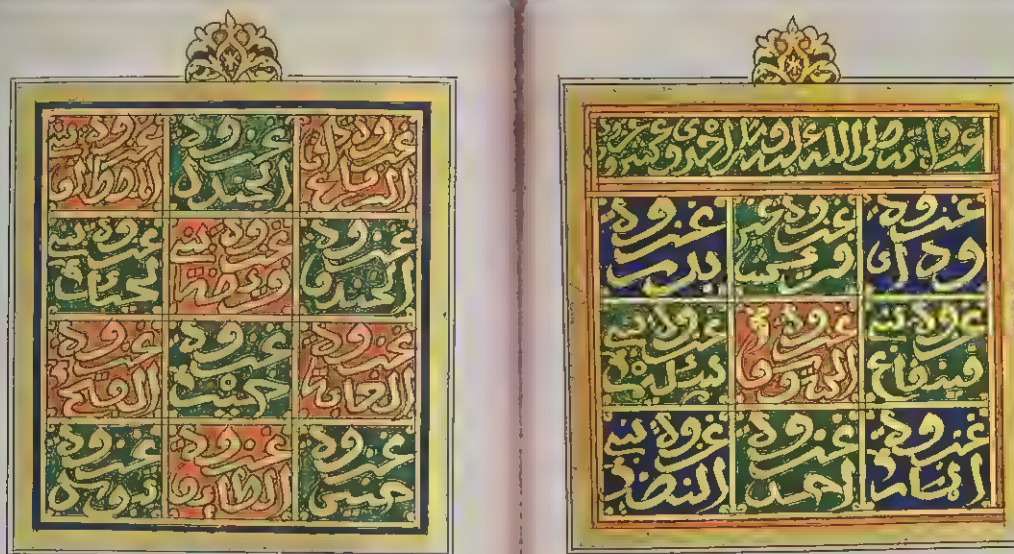 صلى الله عليه وسلم احدى وعشرون
غزوة
ودان
غزوة عير
قريش
غزوة
بدر
غزوة بني
قينقاع
غزوة
غزوة بني
سليم
غزوة
انمار
غزوة
احد
غزوة بني
النضير
غزوة ذات
الرقاع
غزوة
الجندل
غزوة بني
المصطلق
غزوة
الخندق
غزوة بني
قريظة
غزوة بني
لحيان
غزوة
الغابة
غزوة
خيبر
غزوة
الفتح
غزوة
حنين
غزوة
الطايف
غزوة
تبوك